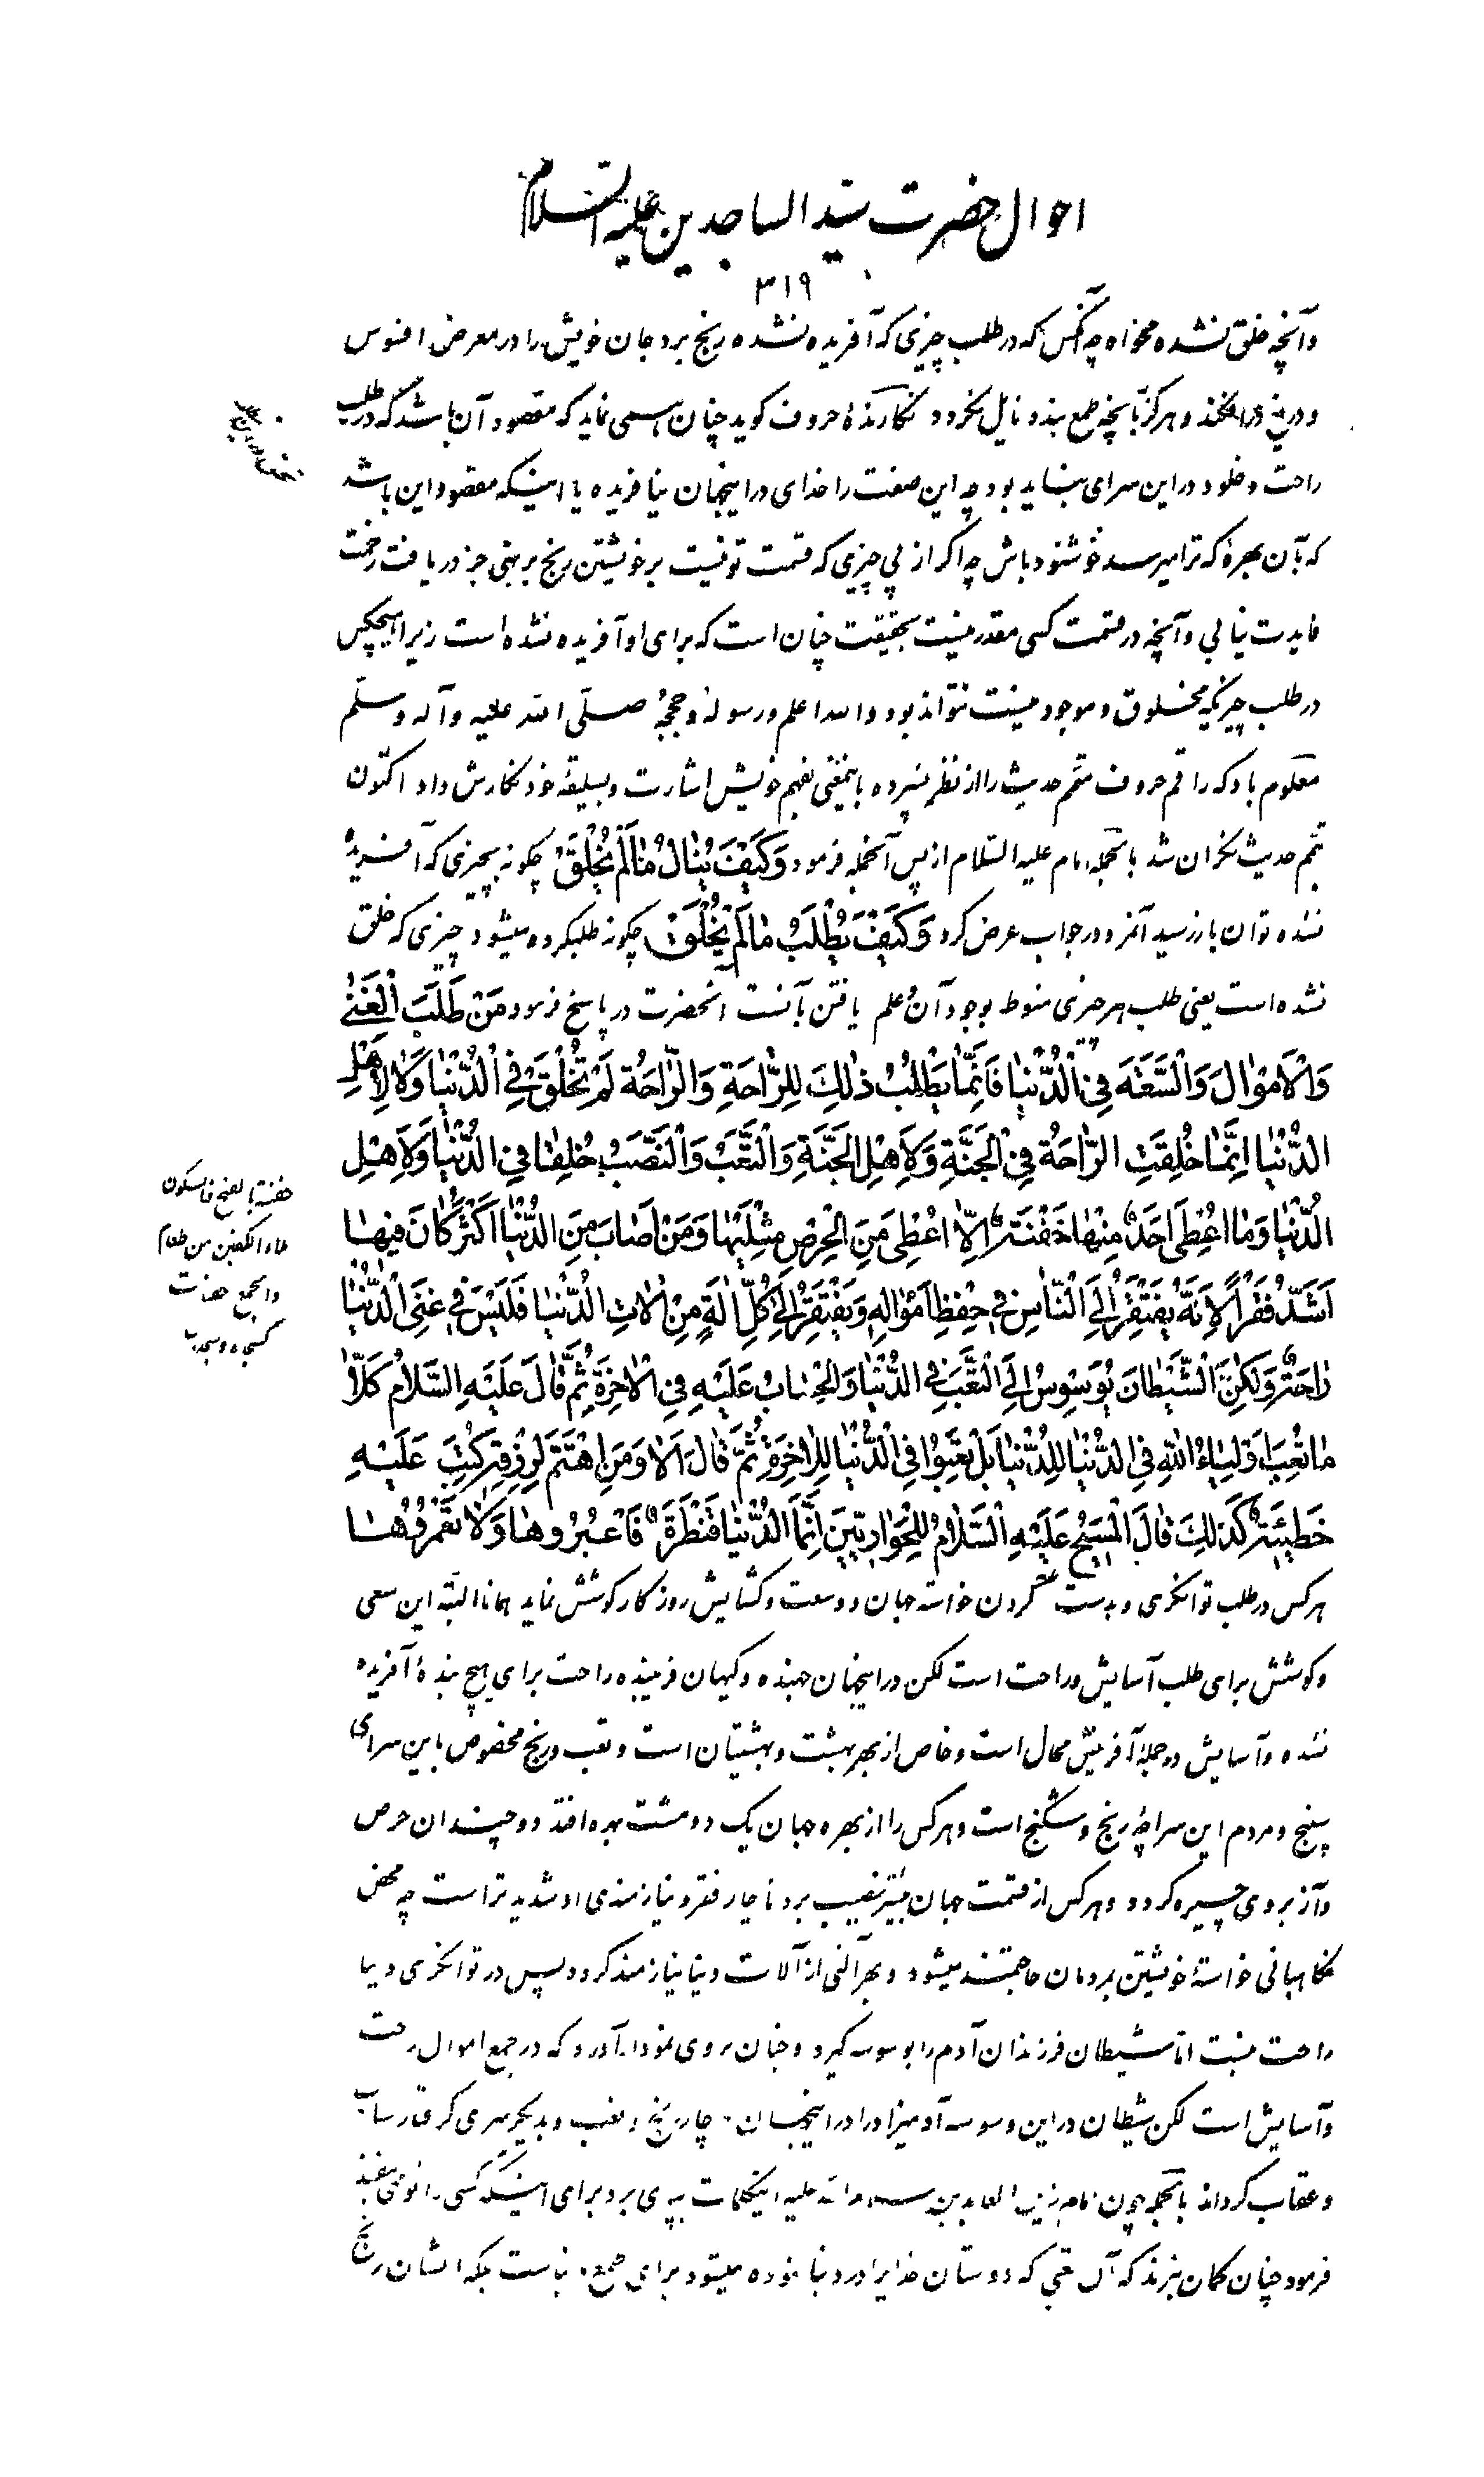 احوال حضرت سید الساجدین علیه السلام
۳۱۹
وآنچه خلق نشده مخواه چه آنکس که در طلب چیزی که آفریده نشده رنج برد جان خویش را در معرض افسوس
و دریغ درافکند و هرگز بآنچه طمع بندد نایل نگردد نگارندهٔ حروف گوید چنان همی نماید که مقصود آن باشد که در طلب
راحت و خلود در این سرای نباید بود چه این صفت را خدای در اینجهان نیافریده یا اینکه مقصود این باشد
که بآن بهرهٔ که ترا میرسد خوشنود باش چه اگر از پی چیزی که قسمت تو نیست بر خویشتن رنج بر نهی جز دریافت زحمت
فایدت نیابی وآنچه در قسمت کسی مقدر نیست بحقیقت چنان است که برای او آفریده نشده است زیرا هیچکس
در طلب چیزیکه مخلوق و موجود نیست نتواند بود والله اعلم ورسوله وحججه صلی الله علیه وآله وسلم
معلوم باد که راقم حروف متمم حدیث را از نظر نسپرده باینمعنی بفهم خویش اشارت و بسلیقهٔ خود نگارش داد اکنون
بتمم حدیث نگران شد بالجمله امام علیه السلام از پس آنجمله فرمود وَكَیْفَ یُنٰالُ مٰا لَمْ یُخْلَقْ چگونه بچیزی که آفریده
نشده توان باز رسید آنمرد در جواب عرض کرد وَكَیْفَ یُطْلَبُ مٰا لَمْ یُخْلَقْ چگونه طلبکرده میشود چیزی که خلق
نشده است یعنی طلب هر چیزی منوط بوجود آن و علم یافتن بآنست آنحضرت در پاسخ فرمود مَنْ طَلَبَ الْغِنٰی
وَالْاَمْوٰالَ وَالسَّعَةَ فِی الدُّنْیٰا فَاِنَّمٰا یَطْلُبُ ذٰلِكَ لِلرّٰاحَةِ وَالرّٰاحَةُ لَمْ تُخْلَقْ فِی الدُّنْیٰا وَلاٰ لِاَهْلِ
الدُّنْیٰا اِنَّمٰا خُلِقَتِ الرّٰاحَةُ فِی الْجَنَّةِ وَلِاَهْلِ الْجَنَّةِ وَالتَّعَبُ وَالنَّصَبُ خُلِقٰا فِی الدُّنْیٰا وَلِاَهْلِ
الدُّنْیٰا وَمٰا اُعْطِیَ اَحَدٌ مِنْهٰا حَفْنَةً اِلاّٰ اُعْطِیَ مِنَ الْحِرْصِ مِثْلَیْهٰا وَمَنْ اَصٰابَ مِنَ الدُّنْیٰا اَكْثَرَ كٰانَ فِیهٰا
اَشَدَّ فَقْراً لِاَنَّهُ یَفْتَقِرُ اِلَی النّٰاسِ فِی حِفْظِ اَمْوٰالِهِ وَیَفْتَقِرُ اِلٰی كُلِّ اٰلَةٍ مِنْ اٰلاٰتِ الدُّنْیٰا فَلَیْسَ فِی غِنَی الدُّنْیٰا
رٰاحَةٌ وَلٰكِنَّ الشَّیْطٰانَ یُوَسْوِسُ اِلَی التَّعَبِ فِی الدُّنْیٰا وَالْحِسٰابُ عَلَیْهِ فِی الْاٰخِرَةِ ثُمَّ قٰالَ عَلَیْهِ السَّلاٰمُ كَلاّٰ
مٰا تَعِبَ اَوْلِیٰاءُ اللهِ فِی الدُّنْیٰا لِلدُّنْیٰا بَلْ تَعِبُوا فِی الدُّنْیٰا لِلْاٰخِرَةِ ثُمَّ قٰالَ اَلاٰ وَمَنِ اهْتَمَّ لِرِزْقِهِ كُتِبَ عَلَیْهِ
خَطِیئَةً كَذٰلِكَ قٰالَ الْمَسِیحُ عَلَیْهِ السَّلاٰمُ لِلْحَوٰارِیّینَ اِنَّمَا الدُّنْیٰا قَنْطَرَةٌ فَاعْبُرُوهٰا وَلاٰ تَعْمُرُوهٰا
هرکس در طلب توانگری و بدست کردن خواسته جهان و وسعت و گشایش روزگار کوشش نماید همانا البته این سعی
وکوشش برای طلب آسایش و راحت است لکن در اینجهان جهنده و کیهان فریبنده راحت برای هیچ بندهٔ آفریده
نشده وآسایش در جملهٔ آفرینش محال است و خاص از بهر بهشت و بهشتیان است و تعب و رنج مخصوص باین سرای
سپنج و مردم این سراچهٔ رنج و شکنج است و هرکس را از بهره جهان یک دو مشت بهره افتد دو چندان حرص
وآز بروی چیره گردد و هرکس از قسمت جهان بیشتر نصیب برد ناچار فقر و نیازمندی او شدیدتر است چه محض
نگاهبانی خواستهٔ خویشتن بمردمان حاجتمند میشود و بهر آلتی از آلات دنیا نیازمند گردد پس در توانگری دنیا
راحت نیست اما شیطان فرزندان آدم را بوسوسه گیرد و چنان بروی نمودار آورد که در جمع اموال راحت
وآسایش است لکن شیطان در این وسوسه آدمیزاد را در اینجهان دچار رنج و تعب و بدیگر سرای گرفتار حساب
و عقاب گرداند بالجمله چون امام زین العابدین سلام الله علیه اینکلمات بپای برد برای اینکه کسی را توهمی نیفتد
فرمود چنان گمان نبرند که آن تعبی که دوستان خدایرا در دنیا نموده میشود برای جمع دنیاست بلکه ایشان رنج
حفنة بالفتح فالسکون
ملاء الکفین من طعام
والجمع حفنات
کسجده وسجدات